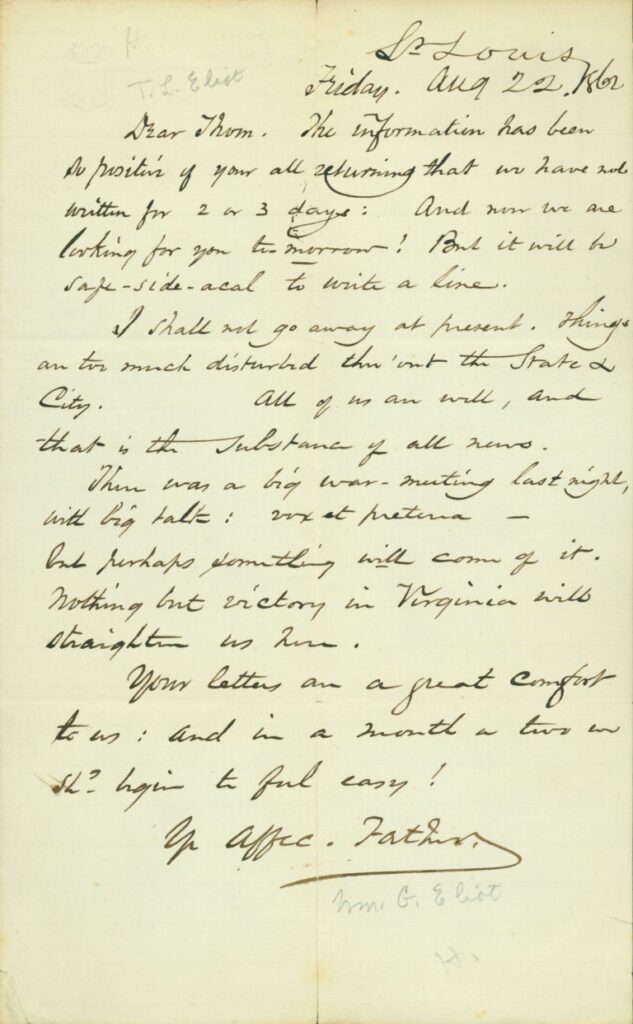 H
T. L. Eliot
St Louis
Friday. Aug 22. 1862
Dear Thom. The information has been
so positive of your all returning that we have not
written for 2 or 3 days: And now we are
looking for you to-morrow! But it will be
safe-side-acal to write a line.
I shall not go away at present. Things
are too much disturbed thro'out the State &
City. All of us are well, and
that is the substance of all news.
There was a big war-meeting last night,
with big talk: vox et preterea —
but perhaps something will come of it.
Nothing but victory in Virginia will
straighten us here.
Your letters are a great comfort
to us: and in a month or two we
shd. begin to feel easy!
Yr Affec. Father.
Wm. G. Eliot
H.